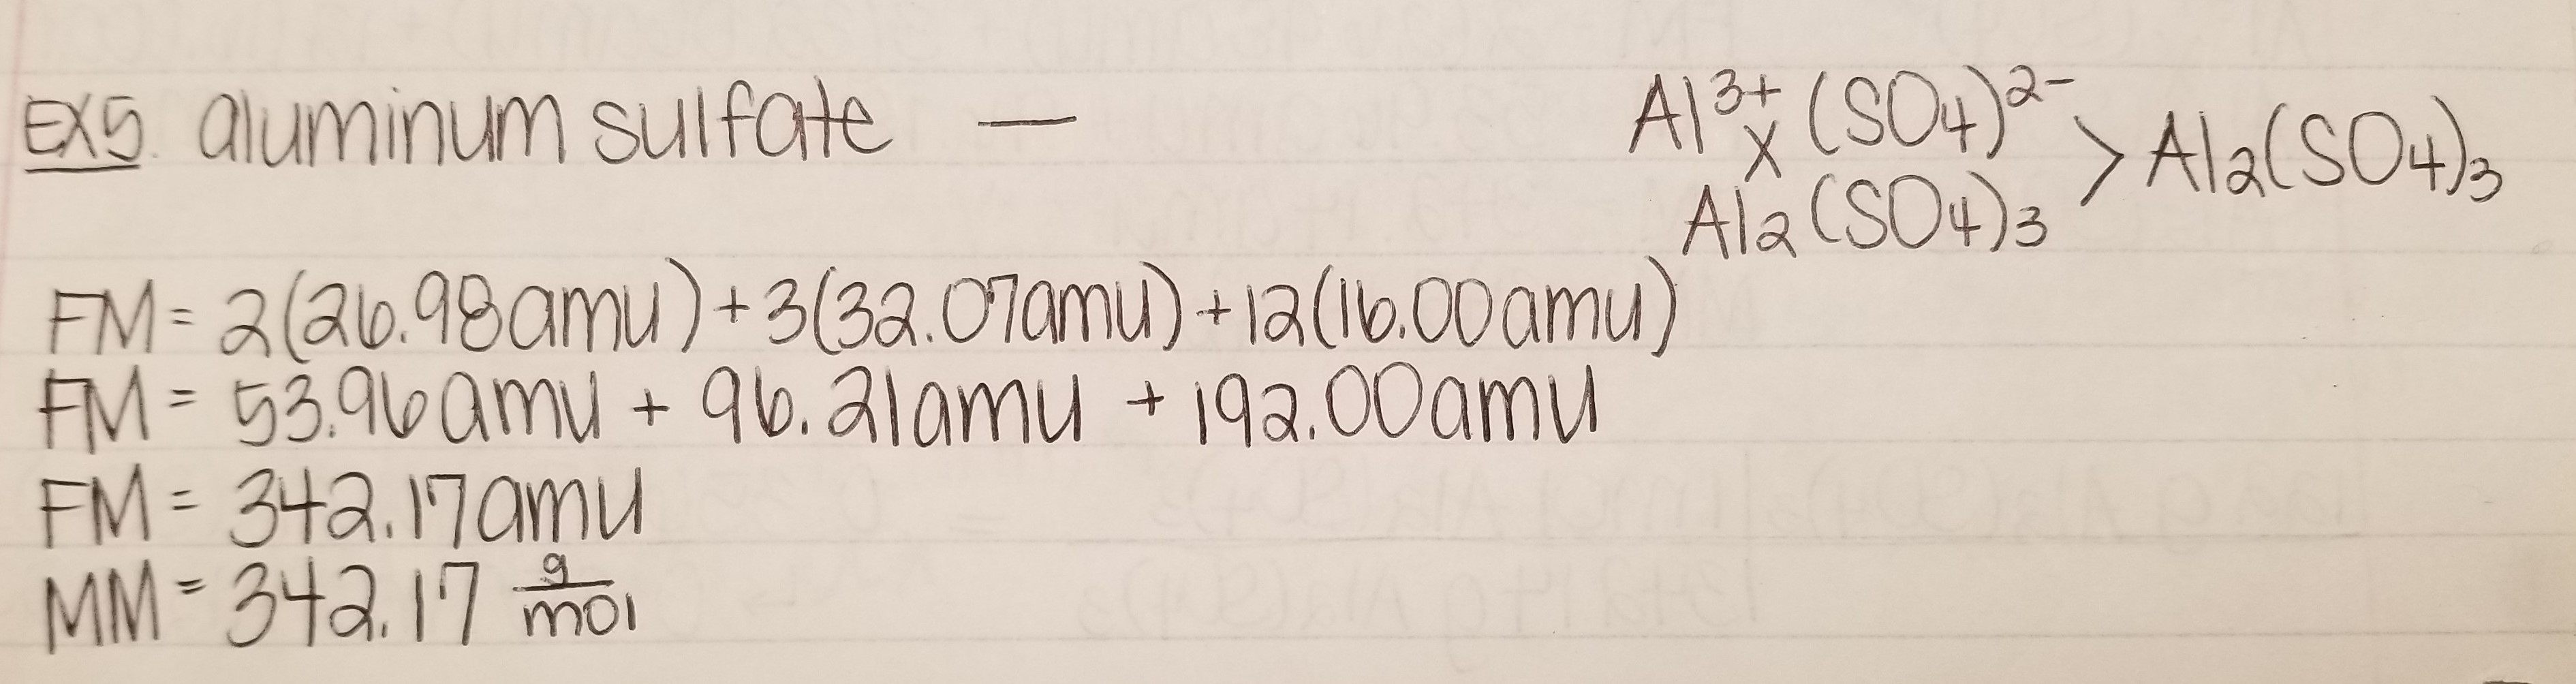 EX5. aluminum sulfate — Al³⁺ (SO₄)²⁻
x > Al₂(SO₄)₃
Al₂(SO₄)₃
FM = 2(26.98amu) + 3(32.07amu) + 12(16.00amu)
FM = 53.96amu + 96.21amu + 192.00amu
FM = 342.17amu
MM = 342.17 g/mol